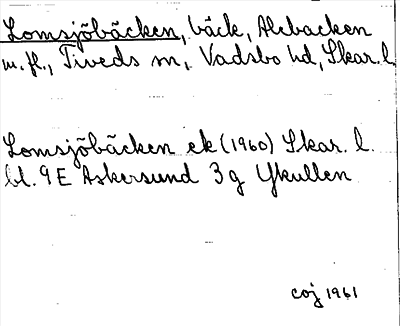 Lomsjöbäcken, bäck, Alebacken
m. fl., Tiveds sn, Vadsbo hd, Skar. l.
Lomsjöbäcken ek (1960) Skar. l.
bl. 9 E Askersund 3 g Ykullen
coj 1961